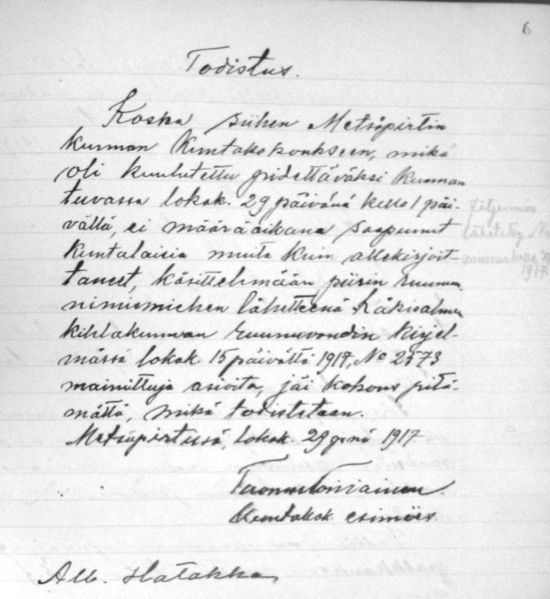 6
Todistus.
Koska siihen Metsäpirtin
kunnan Kuntakokoukseen, mikä
oli kuulutettu pidettäväksi kunnan
tuvassa lokak. 29 päivänä kello 1 päi-
vällä, ei määräaikana saapunut
kuntalaisia muita kuin allekirjoit-
taneet, käsittelemään piirin ruunun
nimismiehen lähetteenä Käkisalmen
kihlakunnan ruunuvoudin kirjel-
mässä lokak. 15 päivältä 1917, No 2573
mainittuja asioita, jäi kokous pitä-
mättä, mikä todistetaan.
Metsäpirtissä, lokak. 29 p:nä 1917
Tuomas Loniainen.
Kuntakok. esimies.
Alb. Hatakka
Jäljennös
lähetetty
1917